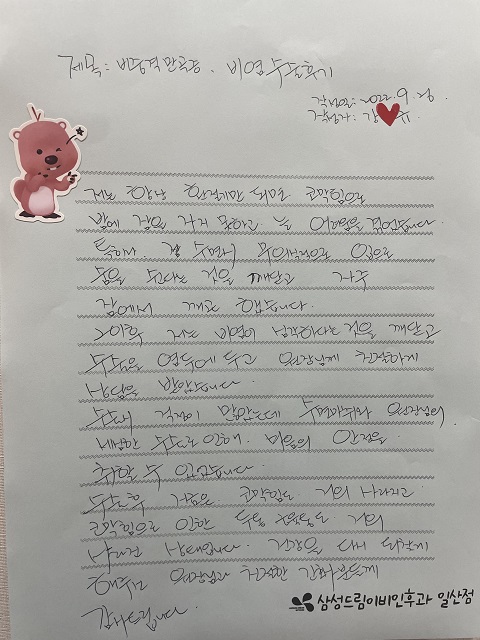 제목: 비중격만곡증, 비염 수술후기
작성일: 2022. 9. 26.
작성자: 강 유
저는 항상 환절기만 되면 코막힘으로
밤에 잠을 자지 못하고 늘 어려움을 겪었습니다.
특히, 잘 수면시 무의식적으로 입으로
숨을 쉰다는 것을 깨닫고 자주
잠에서 깨곤 했습니다.
이후 저는 비염이 심각하다는 것을 깨닫고
수술을 염두에 두고 원장님께 친절하게
상담을 받았습니다.
수술이 걱정이 많았는데 수면마취와 원장님의
세심한 수술로 인해, 마음의 안정을
취할 수 있었습니다.
수술후 지금은 코막힘도 거의 사라지고
코막힘으로 인한 두통 또한 거의
사라진 상태입니다. 건강을 다시 되찾게
해주신 원장님과 친절한 간호사분들께
감사드립니다.
삼성드림이비인후과 일산점